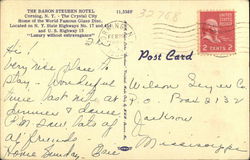 THE BARON STEUBEN HOTEL
Corning, N. Y. - The Crystal City
Home of the World Famous Glass Disc.
Located on N. Y. State Highways No. 17 and
and U. S. Highway 15
"Luxury without extravagance"
32768
Post Card
2 CENTS 2
Hi -
Very nice place to
stay - Wonderful
time last nite at
dinner & dance
lots of
friends.
Home Sunday -
Wilson
P.O. Box 2132
Jackson
Mississippi